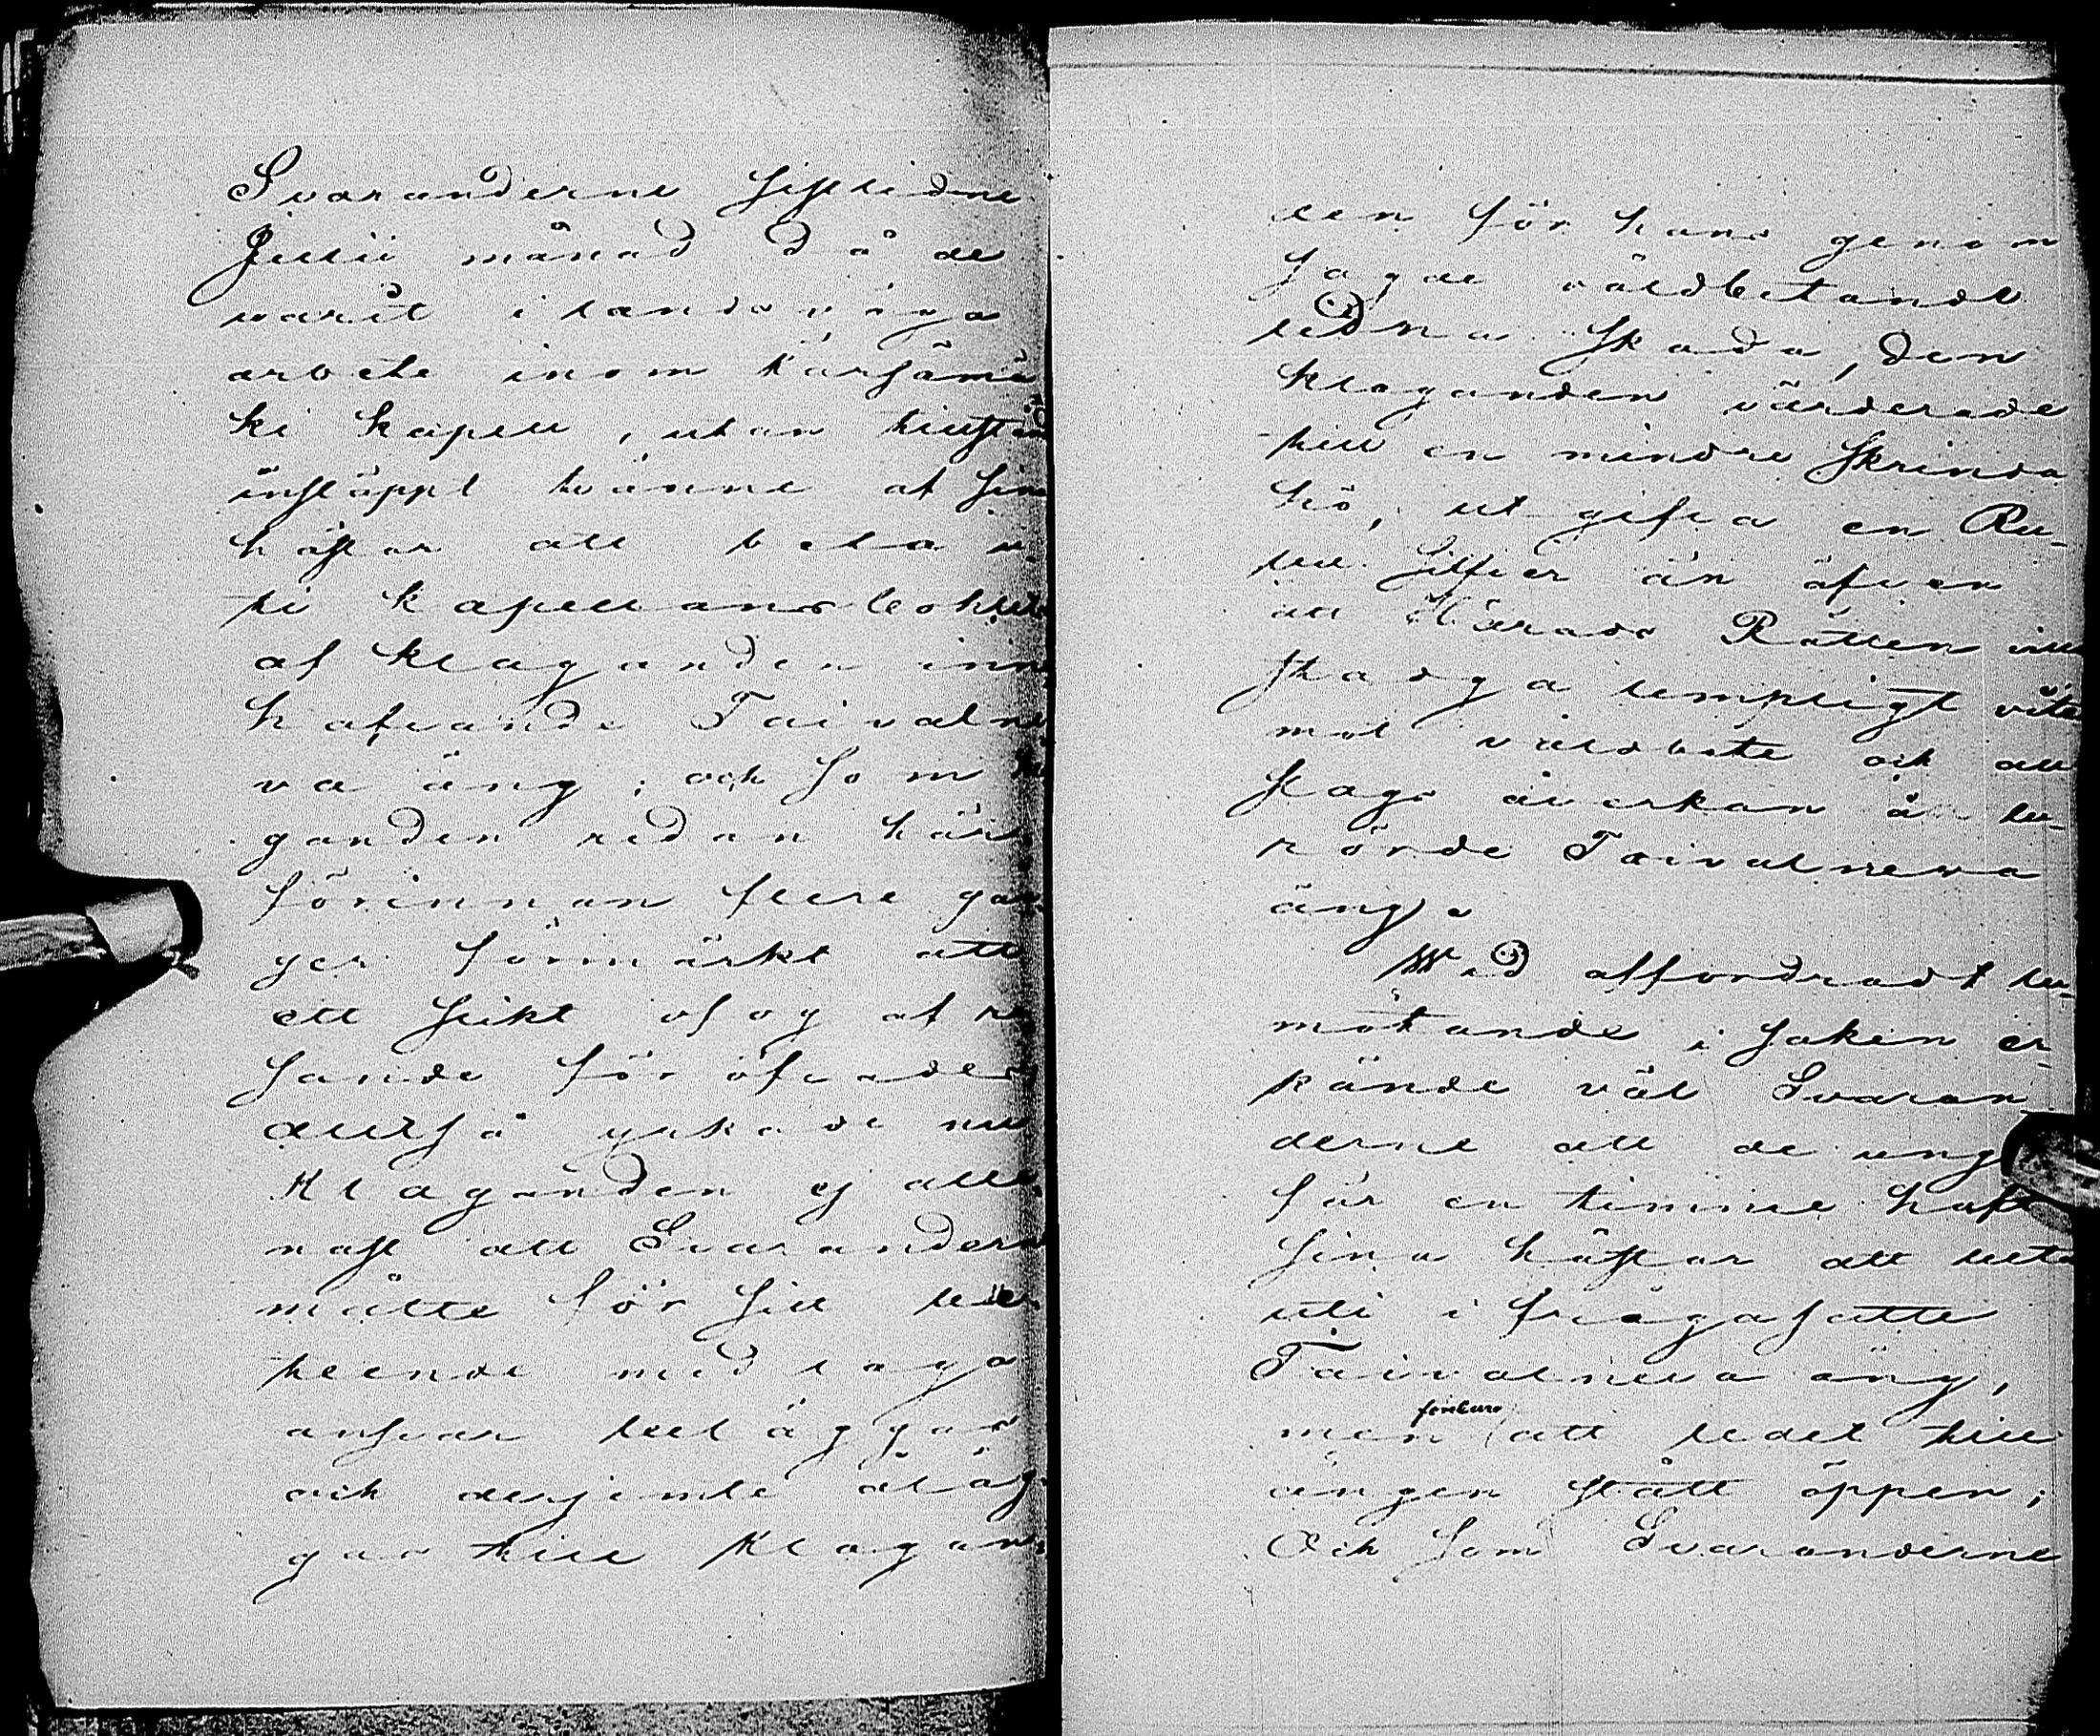 Svaranderne sistledne
Julii månad då de
varit i landsväga
arbete inom Kärsämä
ki kapell, utan tillstånd
insläppt tvänne af sina
hästar att beta u-
ti kapellansbohlet
af klaganden inne
hafvande Taivalne
va äng; och som kla
ganden redan här
förinnan flere gån
ger förmärkt att
ett slikt ofog af re
sande föröfvades
alltså yrkade nu
Klaganden ej alle
nast att Svarandern
måtte för sitt be
teende med laga
answar beläggas
och derjemte åläg
gas till Klagan
den för hans genom
sagde våldbetande
lidna skada, den
klaganden värderade
till en mindre skrinda
hö, utgifva en Ru-
bel Silfver än äfven
att Härads Rätten ville
stadga lempligt vite
mot våldbete och all
slags åverkan å be-
rörde Taivalneva
äng.
Wid affordradt be-
mötande i saken er-
kände väl Svaran
derne att de unge
fär en timme haft
sina hästar att beta
uti ifrågasatte
Taivalneva äng,
men förebaro att ledet till
ängen stått öppen;
Och som Svaranderne